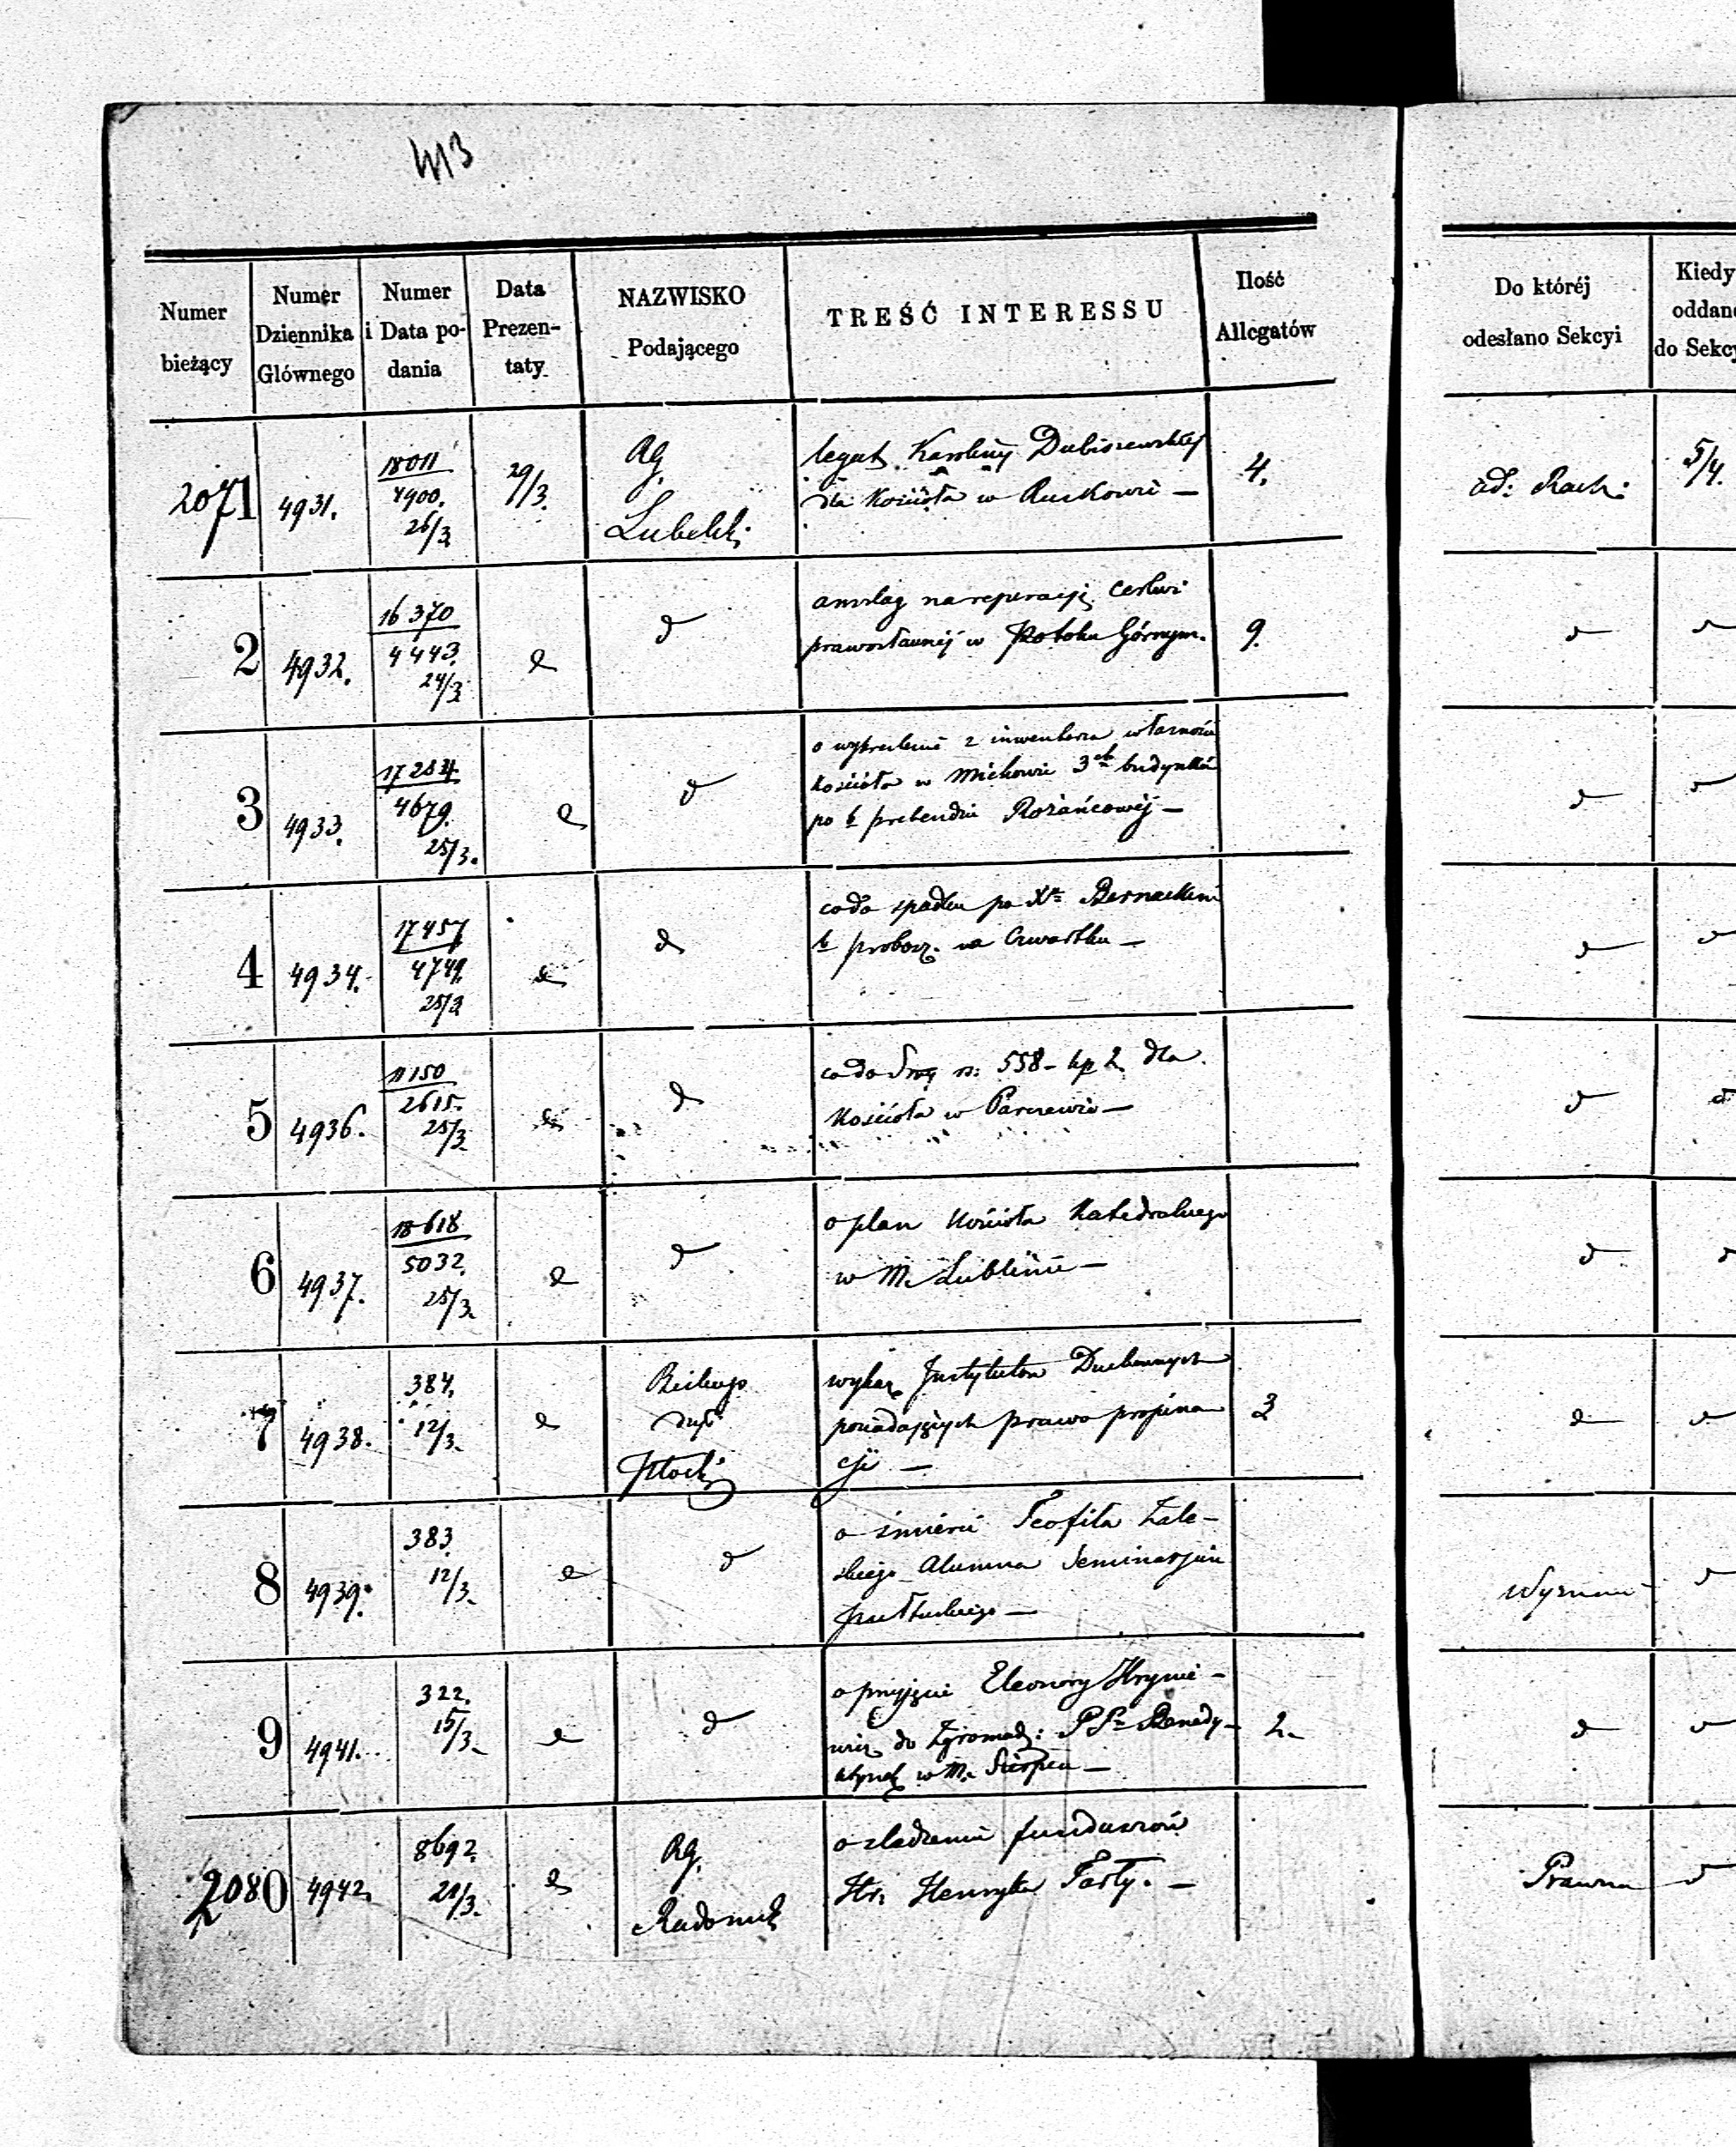 413
Numer bieżący
Numer Dziennika Głównego
Numer i Data podania
Data Prezentaty
NAZWISKO Podającego
TREŚĆ INTERESSU
Ilość Allegatów
Do któréj odesłano Sekcyi
Kiedy oddan
do Sekcy
2071 4931. 18011 4900. 26/3 29/3. Rg. Lubelski
legat Karoliny Dubiszewskiej
dla Kościoła w
4. ad: Rach: 5/4.
2 4932. 16370 4443. 24/3 d d
anszlag na reperacyją Cerkwi
prawosławnéj w Potoku Górnym.
9. d d
3 4933. 4679. 25/3. d d
o wykreślenie z inwentarza własności
Kościoła w Michowie 3ch budynków
po b prebendzie Rożańcowéj —
d d
4 4934. 17457 4749. 25/3 d d
co do spadku po Xdzu Bernackim
b probosz. na Czwartku —
d d
5 4936. 11150 2615. 25/3 d d
co do Sumy rs: 558 - kp 2 dla
Kościoła w Parczewie —
d d
6 4937. 18618 5032. 25/3. d d
o plan Kościoła Katedralnego
w M. Lublinie —
d d
7 4938. 384. 12/3. d
Płocki
wykaz Instytutów Duchownych
posiadających prawo propina
cji —
3 d d
8 4939. 383. 12/3. d d
o śmierci Teofila Zale-
skiego Alumna Seminarjum
pułtuskiego —
Wyznań d
9 4941. 322. 15/3. d d
o przyjęcie Eleonory Hrynie-
wicz do Zgromadz: PPn Benedy-
ktynek w M. Sierpcu —
2. d d
2080 4942. 8692. 21/3. d Rg. Radomski
o zladzenie funduszów
Hr: Henryka Tarły. —
Prawna d